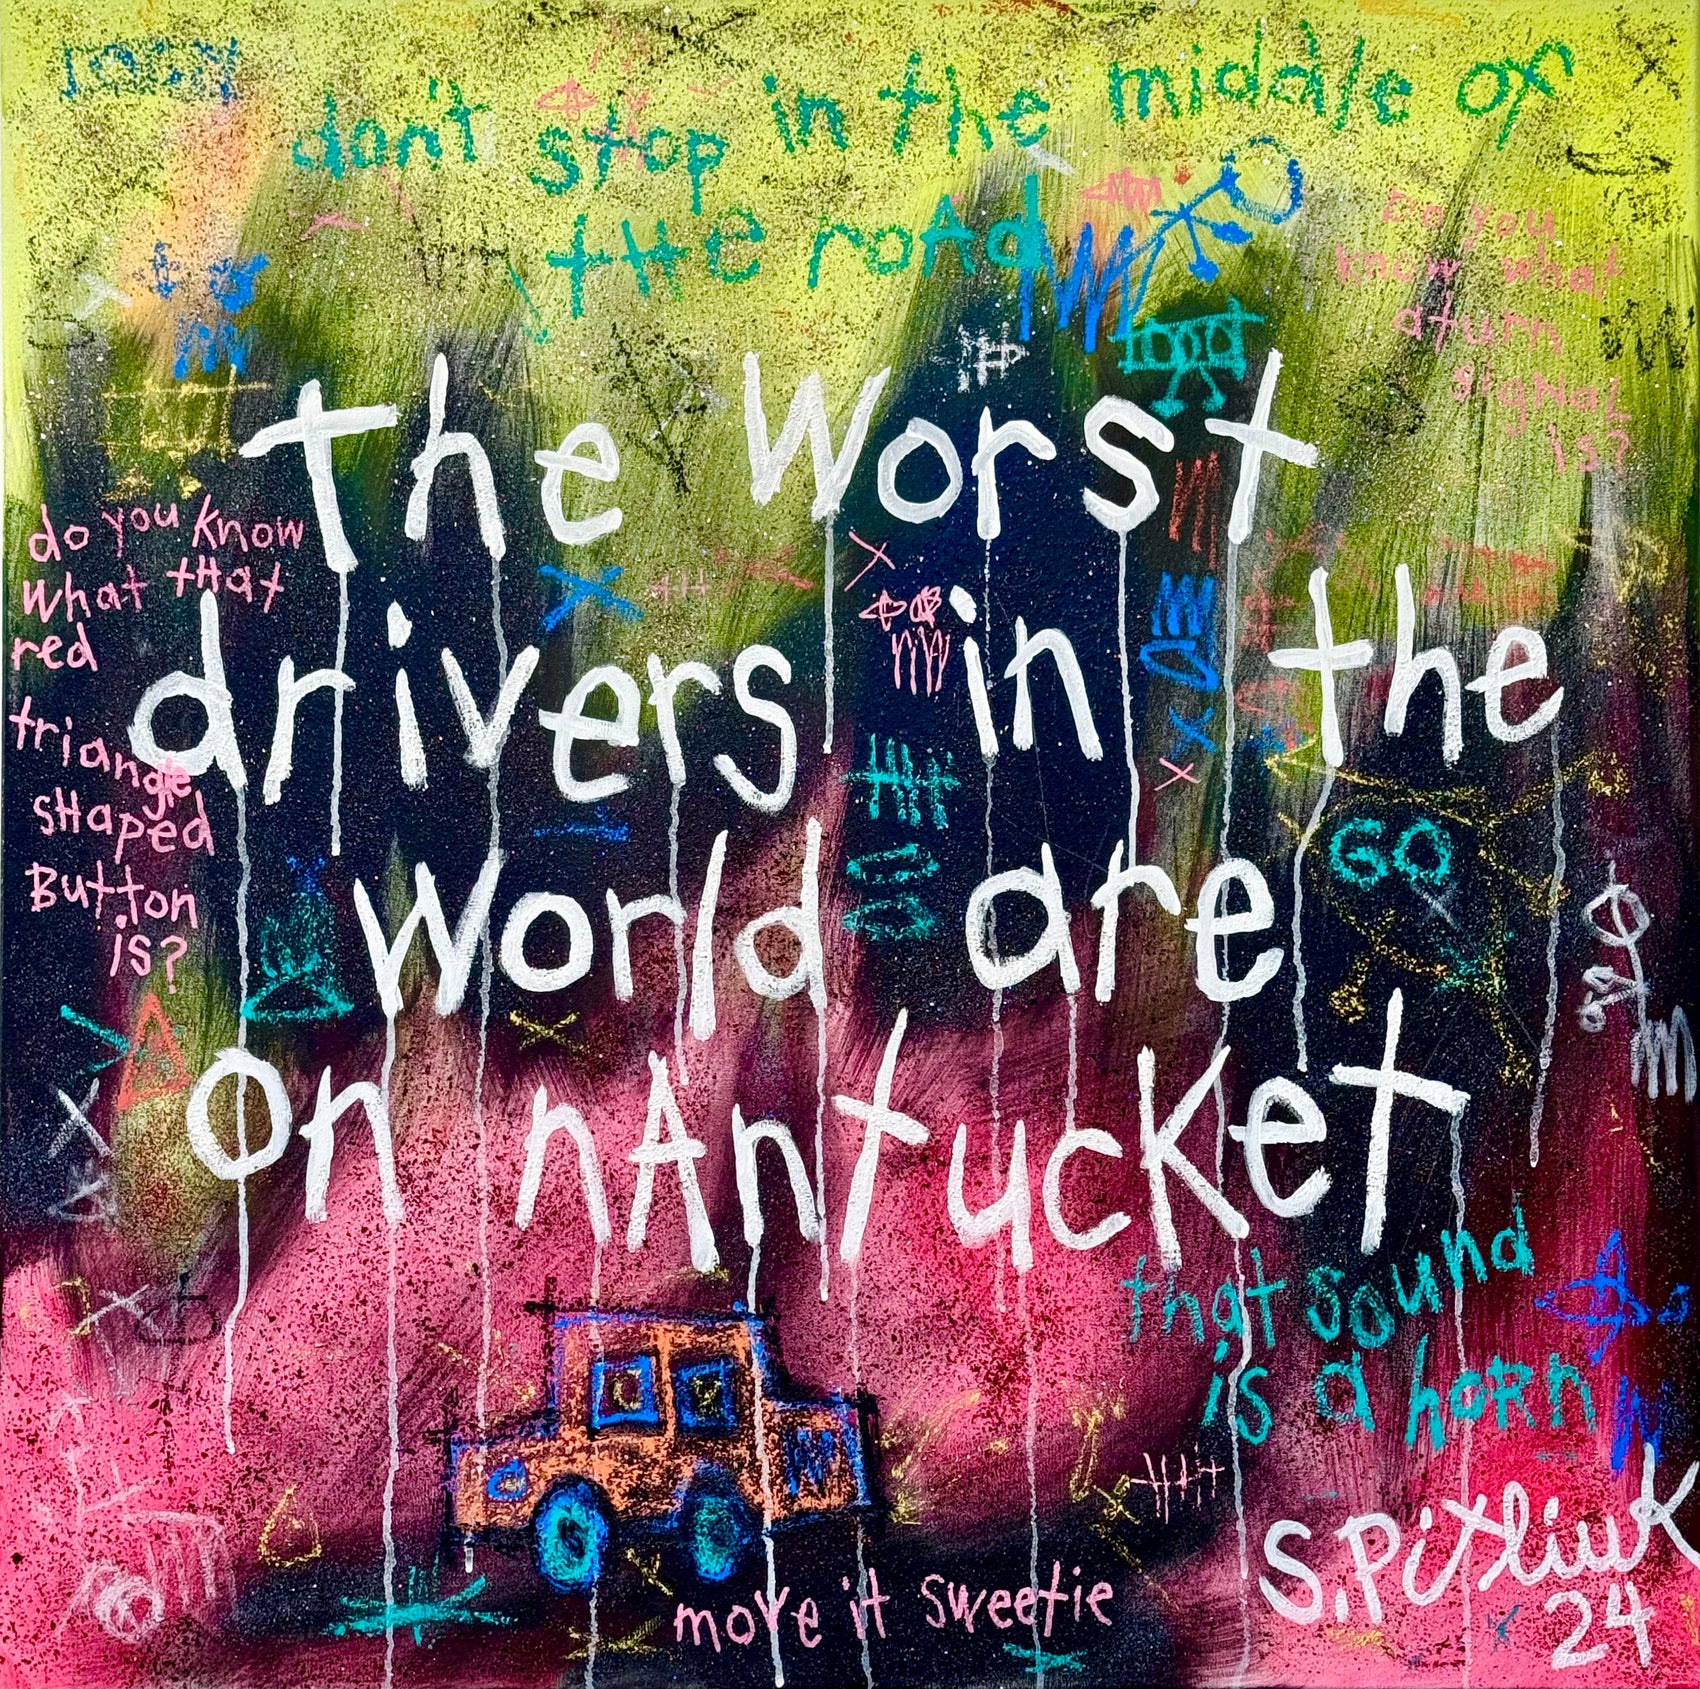 don't stop in the middle of
the roAd
Do you
know what
aturn
sigNaL
is?
the worst
do you know
what that
red
triangle
sHaped
Button
is?
drivers in the
world are
GO
on nAntucket
that sound
is a hoRn
move it sweetie
S.Pitliuk
24